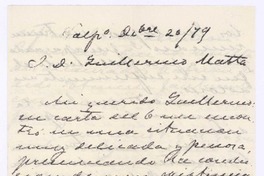 Valpo. Dibre 20/79
S. D. Guillermo Matta
Mi querido Guillermo:
carta del 6 me encon
tró en una situacion
muy delicada y penosa,